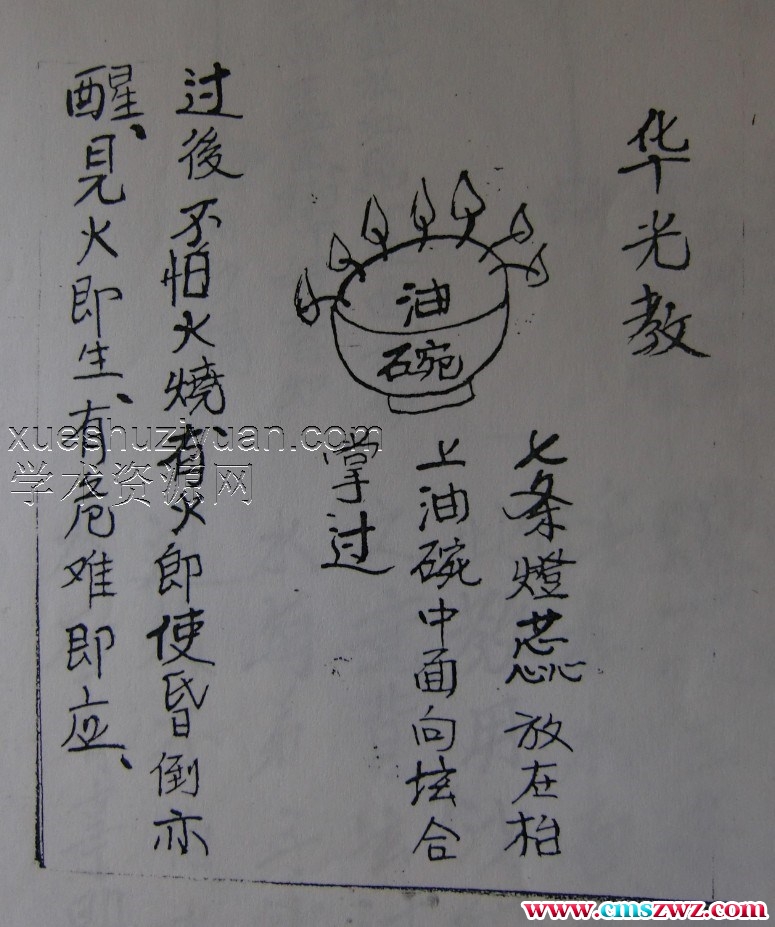 华光教
七条燈蕊放在枱
上油碗中面向坛合
掌过
油
碗
过後不怕火燒、有火即使昏倒亦
醒、見火即生、有危难即应、
xueshuziyuan.com
学术资源网
www.cmszwz.com